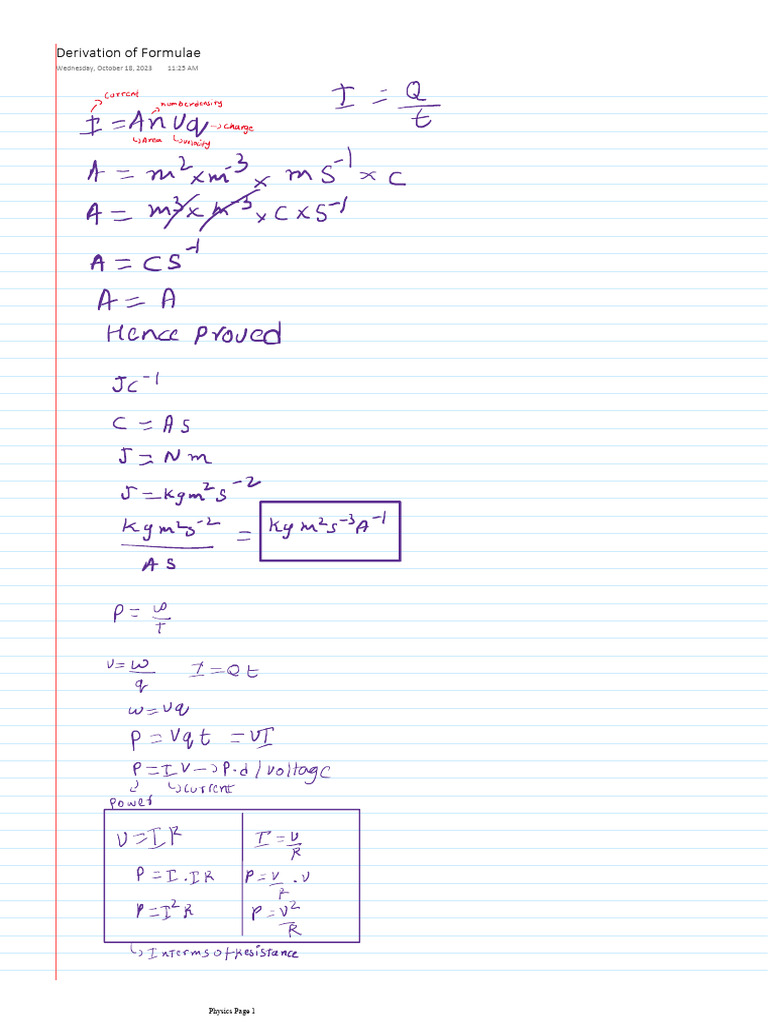 Derivation of Formulae
Wednesday, October 18, 2023 11:25 AM
I = Q/t
Current
number density
I = A n v q → charge
↳ Area ↳ velocity
A = m² × m⁻³ × m s⁻¹ × C
A = m³ × m⁻³ × C × s⁻¹
A = C s⁻¹
A = A
Hence proved
J C⁻¹
C = A s
J = N m
J = kg m² s⁻²
kg m² s⁻² / A s = kg m² s⁻³ A⁻¹
P = w/T
v = w/q I = Q t
w = v q
P = V q t = V I
P = I V → P.d / voltage
↳ current
Power
V = I R I = V/R
P = I . I R P = V/R . V
P = I² R P = V²/R
↳ In terms of Resistance
Physics Page 1